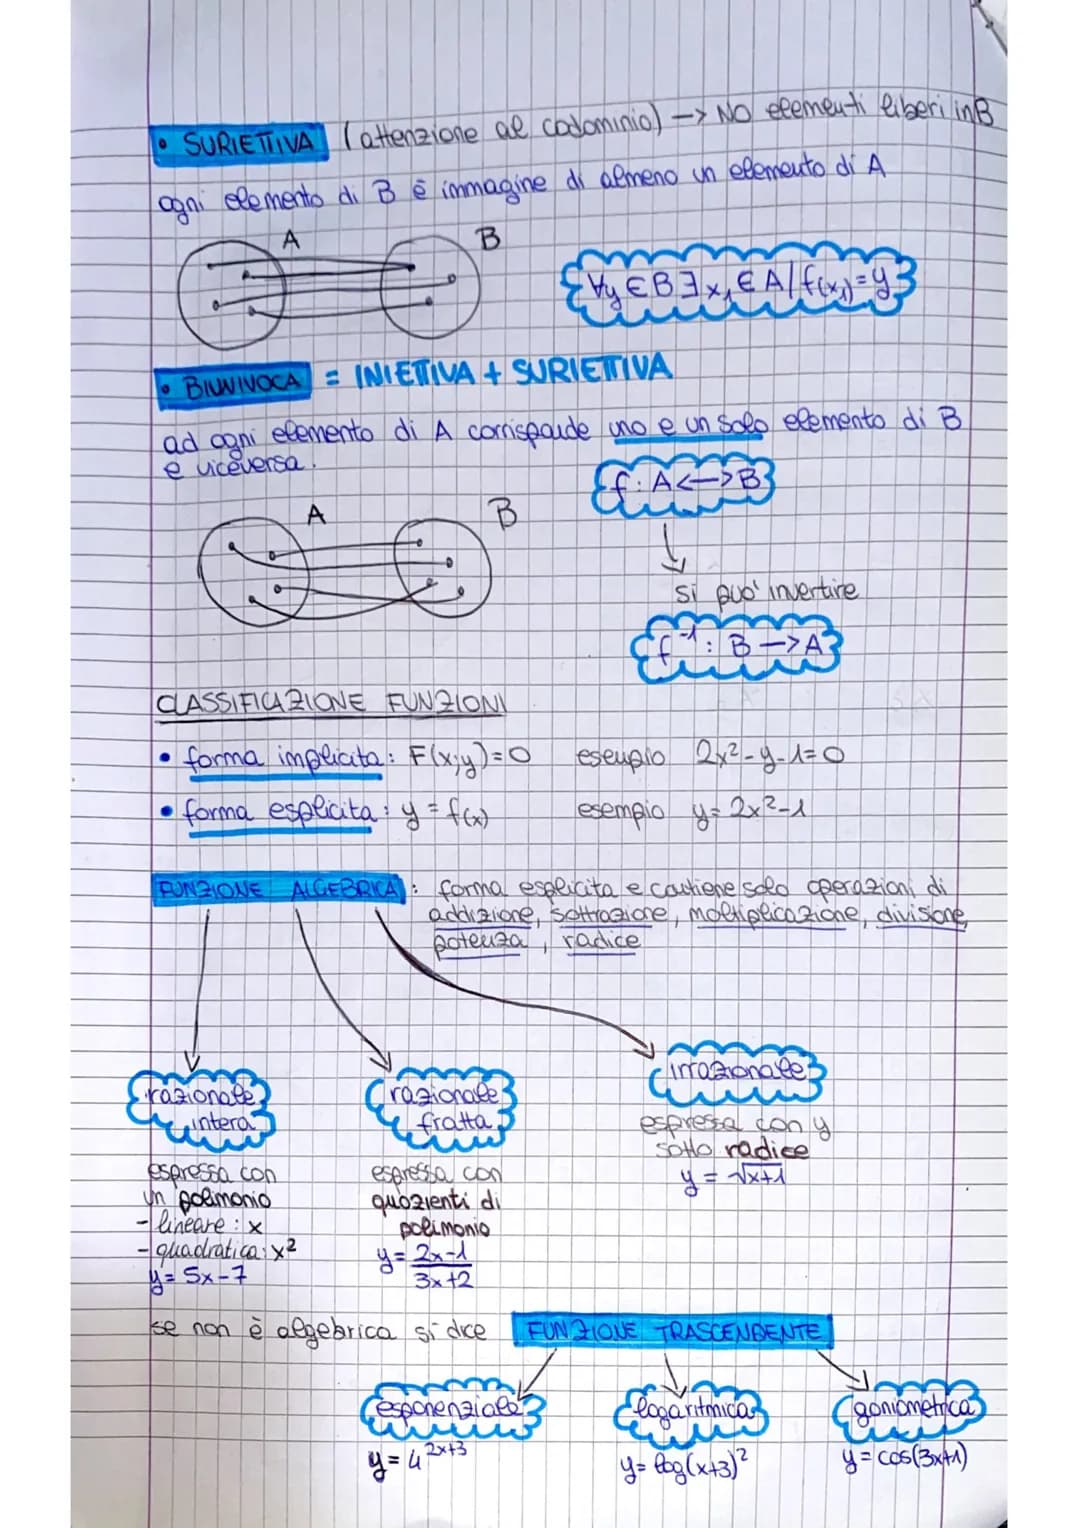 • SURIETTIVA (attenzione al codominio) -> NO elementi liberi in B
ogni elemento di B è immagine di almeno un elemento di A
A B
∀y ∈ B ∃ x₁ ∈ A / f(x₁) = y
• BIUNIVOCA = INIETTIVA + SURIETTIVA
ad ogni elemento di A corrisponde uno e un solo elemento di B
e viceversa.
f: A <-> B
A B
si puo' invertire
f⁻¹: B -> A
CLASSIFICAZIONE FUNZIONI
• forma implicita: F(x;y)=0 esempio 2x²-y-1=0
• forma esplicita: y = f(x) esempio y= 2x²-1
FUNZIONE ALGEBRICA: forma esplicita e contiene solo operazioni di
addizione, sottrazione, moltiplicazione, divisione,
potenza, radice
razionale intera
razionale fratta
irrazionale
espressa con
un polimonio
- lineare: x
- quadratica: x²
y= 5x-7
espressa con
quozienti di
polimonio
y= 2x-1
3x+2
espressa con y
sotto radice
y = √x+1
se non è algebrica si dice FUNZIONE TRASCENDENTE
esponenziale logaritmica goniometrica
y= 4²ˣ⁺³ y= log(x+3)² y= cos(3x+1)